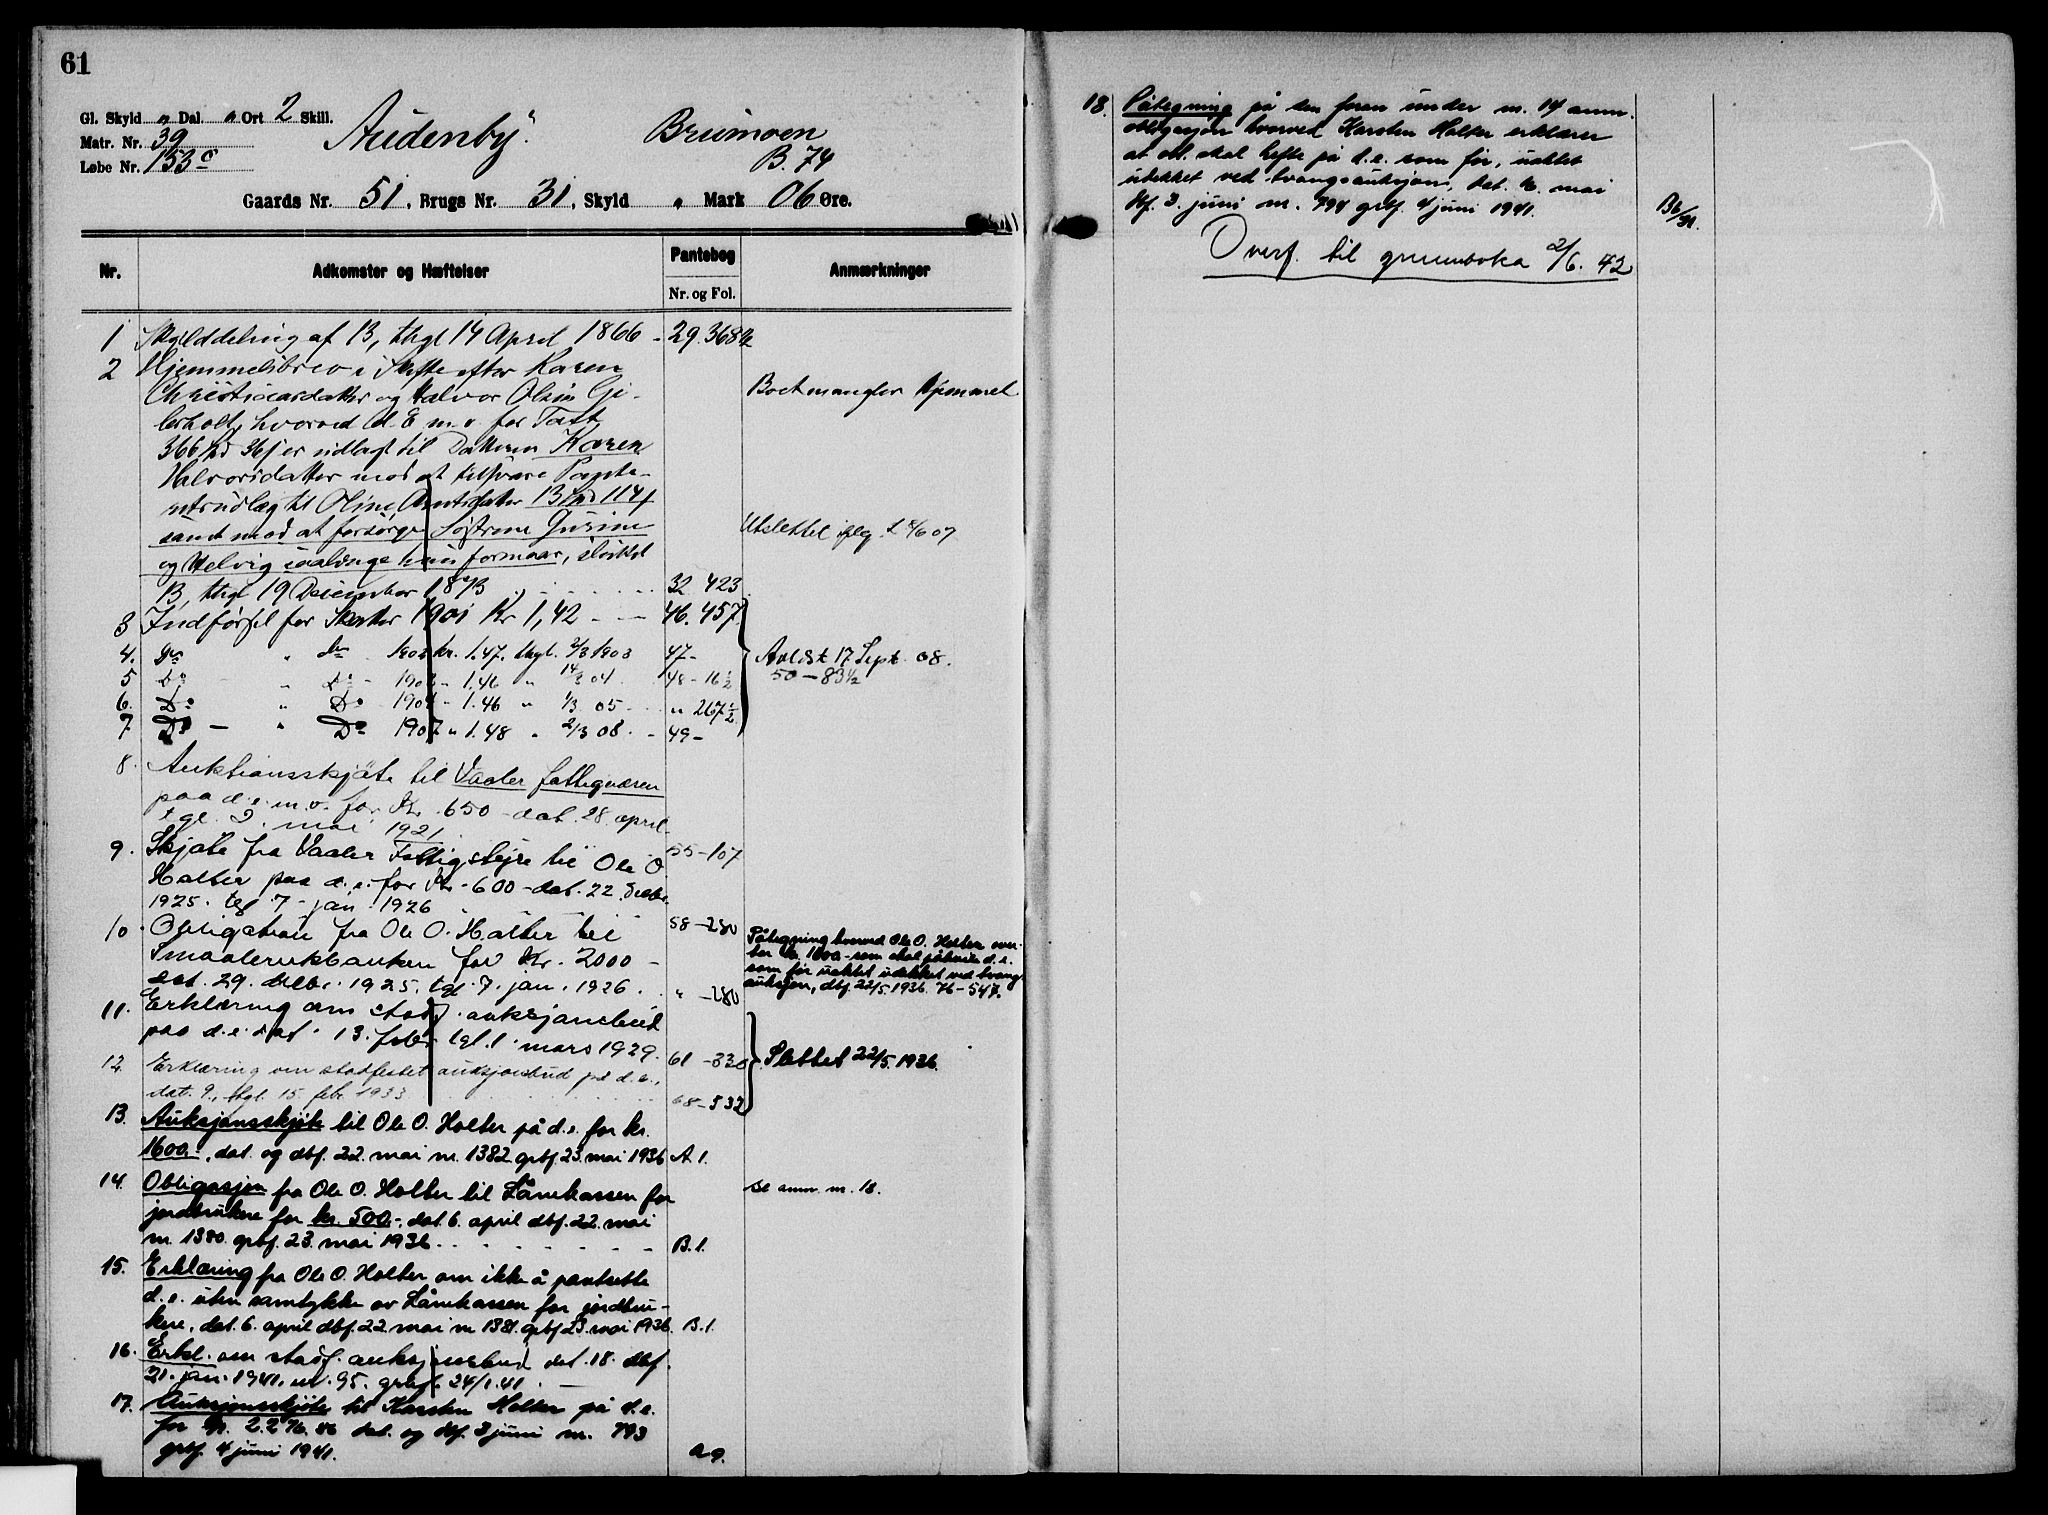 61
Gl. Skyld „ Dal. „ Ort 2 Skill.
Matr. Nr. 39
Løbe Nr. 153c
Audenby
Brumoen
B. 74
Gaards Nr. 51, Brugs Nr. 31, Skyld „ Mark 06 Øre.
Nr. Adkomster og Hæftelser Pantebog Nr. og Fol. Anmærkninger
1 Skylddeling af 13, thgl 14 April 1866 - 29.368½
2 Hjemmelsbrev i Skifte efter Karen
Christiansdatter og Halvor Olsen
hvorved d. E. m. v. for Taxt
366 er udlagt til Datteren Karen
Halvorsdatter mod at tilsvare
til Oline 13 114
samt mod at forsørge Søstrene
og Helvig saalænge hun formaar,
13, thgl 19 December 1873 32 423
Boet mangler Hjemmel
Udslettet 07
3 Indførsel for Skatter 1901 Kr 1,42 - - 46.457
4. Do „ do 1902 kr. 1.47. thgl. 2/3 1903 47-
5 Do „ Do 1903 - 1.46 „ 14/3 04 48-16½
6. Do „ Do 1904 - 1.46 „ 1/3 05 „ 267½
7 Do - „ Do 1907 „ 1.48 „ 2/3 08. - 49-
Avlést 17 Sept. 08.
50-83½
8. Auktionsskjøte til Vaaler fattigvæsen
paa d. e. m. v. for Kr. 650 - dat. 28. april
tgl. 2. mai 1921 55-107
9. Skjøte fra Vaaler Fattigstyre til Ole O
Holter paa d. e. for Kr. 600 - dat. 22. decbr.
1925. tgl 7. jan. 1926 58-280
10. Obligation fra Ole O. Holter til
Smaalenenkbanken for Kr. 2000 -
dat. 29. decbr. 1925. tgl. 7. jan. 1926. „ -280
Påtegning hvorved Ole O. Holter
kr. 1600.- som skal d. e.
som før uaktet udekket ved tvangs
auksjon, dbf. 22/5 1936. 76-547.
11. Erklæring om stadf. auksjonsbud
paa d. e. dat. 13. febr. tgl. 1. mars 1929. 61-330
12. Erklæring om stadfestet auksjonsbud på d. e.,
dat. 9., thgl. 15. febr. 1933 68-532
Slettet 22/5 1936.
13. Auksjonsskjøte til Ole O. Holter på d. e. for kr.
1600.-, dat. og dbf. 22. mai nr. 1382 grbf. 23. mai 1936 A 1.
14. Obligasjon fra Ole O. Holter til Lånekassen for
jordbrukere for kr. 500.-, dat. 6. april dbf. 22. mai
nr. 1380. grbf. 23. mai 1936 B. 1.
se anm. nr. 18.
15. Erklæring fra Ole O. Holter om ikke å pantsette
d. e. uten samtykke av Lånekassen for jordbru-
kere, dat. 6. april dbf. 22. mai nr 1381. grbf. 23. mai 1936. B. 1.
16. Erkl. om stadf. auksjonsbud dat. 18. dbf.
21. jan. 1941. nr. 95. grbf. 24/1.41. -
17. Auksjonsskjøte til Karsten Holter på d. e.
for kr. 2.276.86 dat. og dbf. 3 juni nr. 793
grbf. 4 juni 1941. A 9.
18. Påtegning på den foran under nr. 14 anm.
obligasjon hvorved Karsten Holter erklærer
at obl. skal hefte på d. e. som før, uaktet
udekket ved tvangsauksjon, dat. 6. mai
dbf. 3. juni nr. 794 grbf. 4 juni 1941. B6/31.
Overf. til grunnboka 2/6. 42